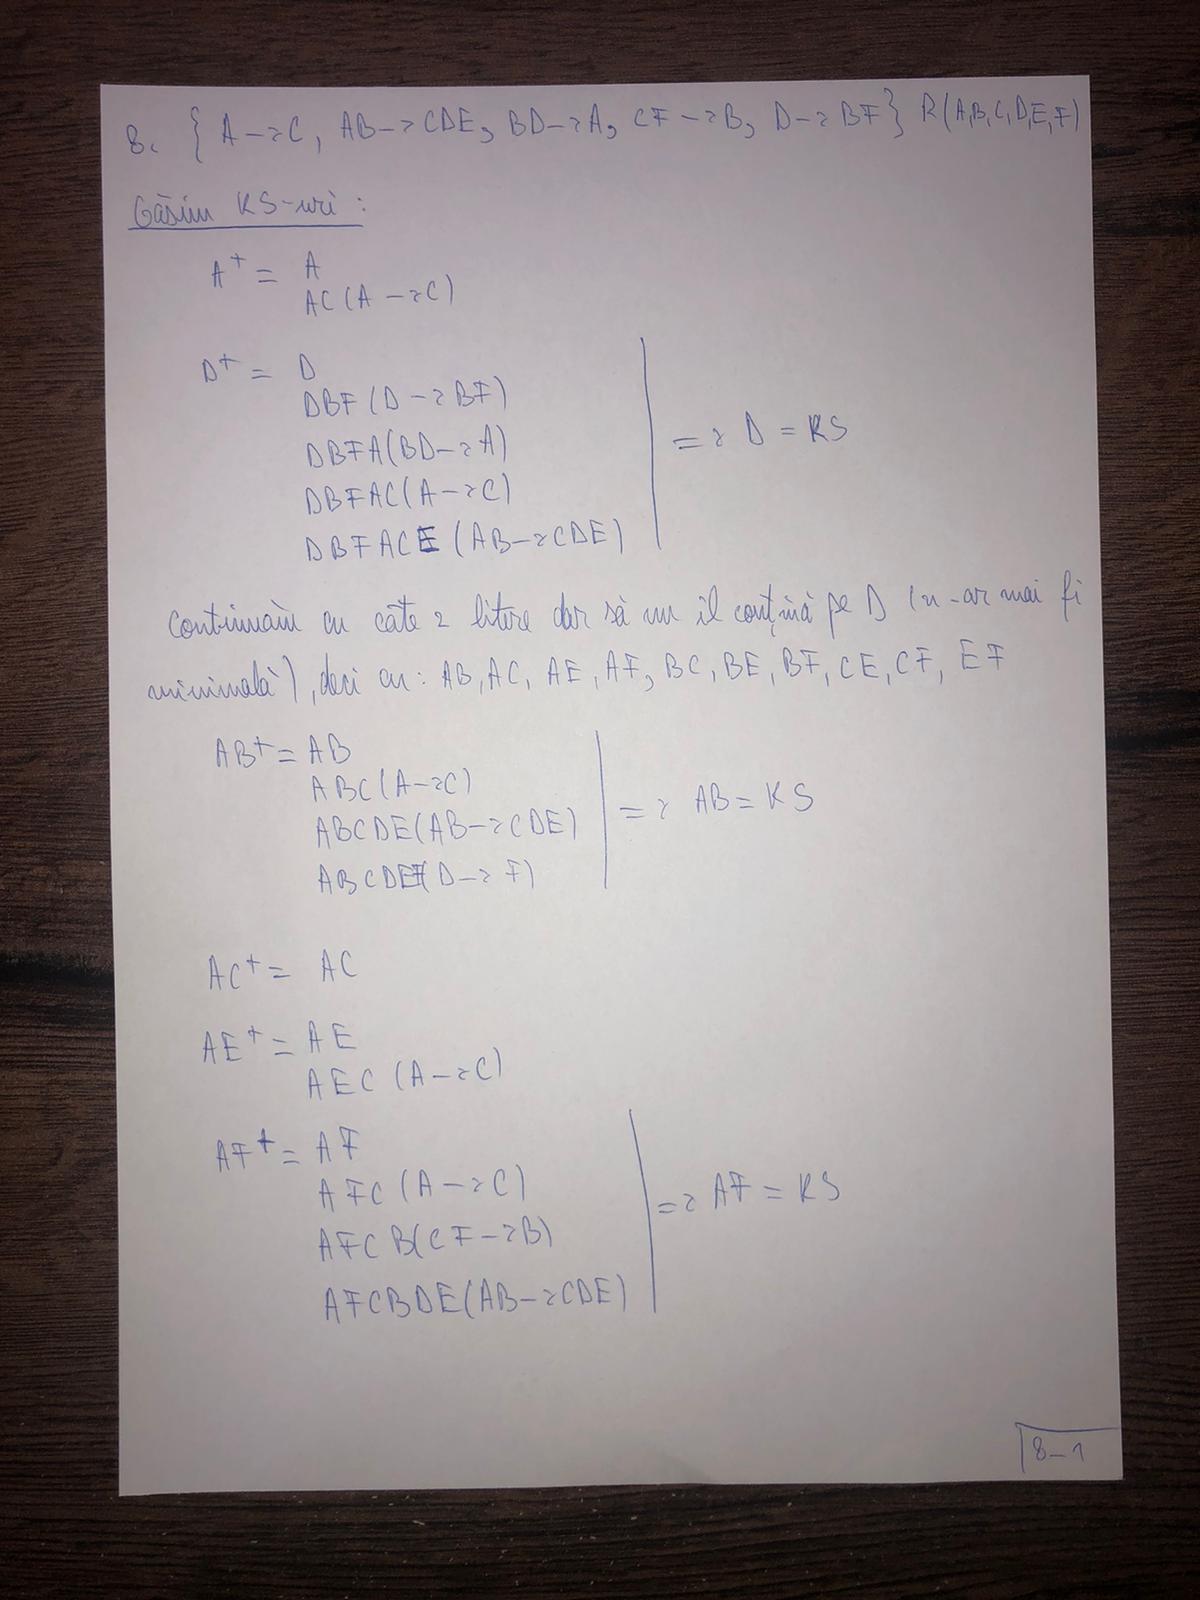 8. { A → C, AB → CDE, BD → A, CF → B, D → BF } R(A,B,C,D,E,F)
Găsim KS-uri:
A+ = A
AC (A → C)
D+ = D
DBF (D → BF)
DBFA (BD → A)
DBFAC (A → C)
DBFACE (AB → CDE)
=> D = KS
Continuăm cu câte 2 litere dar să nu îl conțină pe D (n-ar mai fi
minimală), deci cu: AB, AC, AE, AF, BC, BE, BF, CE, CF, EF
AB+ = AB
ABC (A → C)
ABCDE (AB → CDE)
ABCDEF (D → F)
=> AB = KS
AC+ = AC
AE+ = AE
AEC (A → C)
AF+ = AF
AFC (A → C)
AFCB (CF → B)
AFCBDE (AB → CDE)
=> AF = KS
8-1